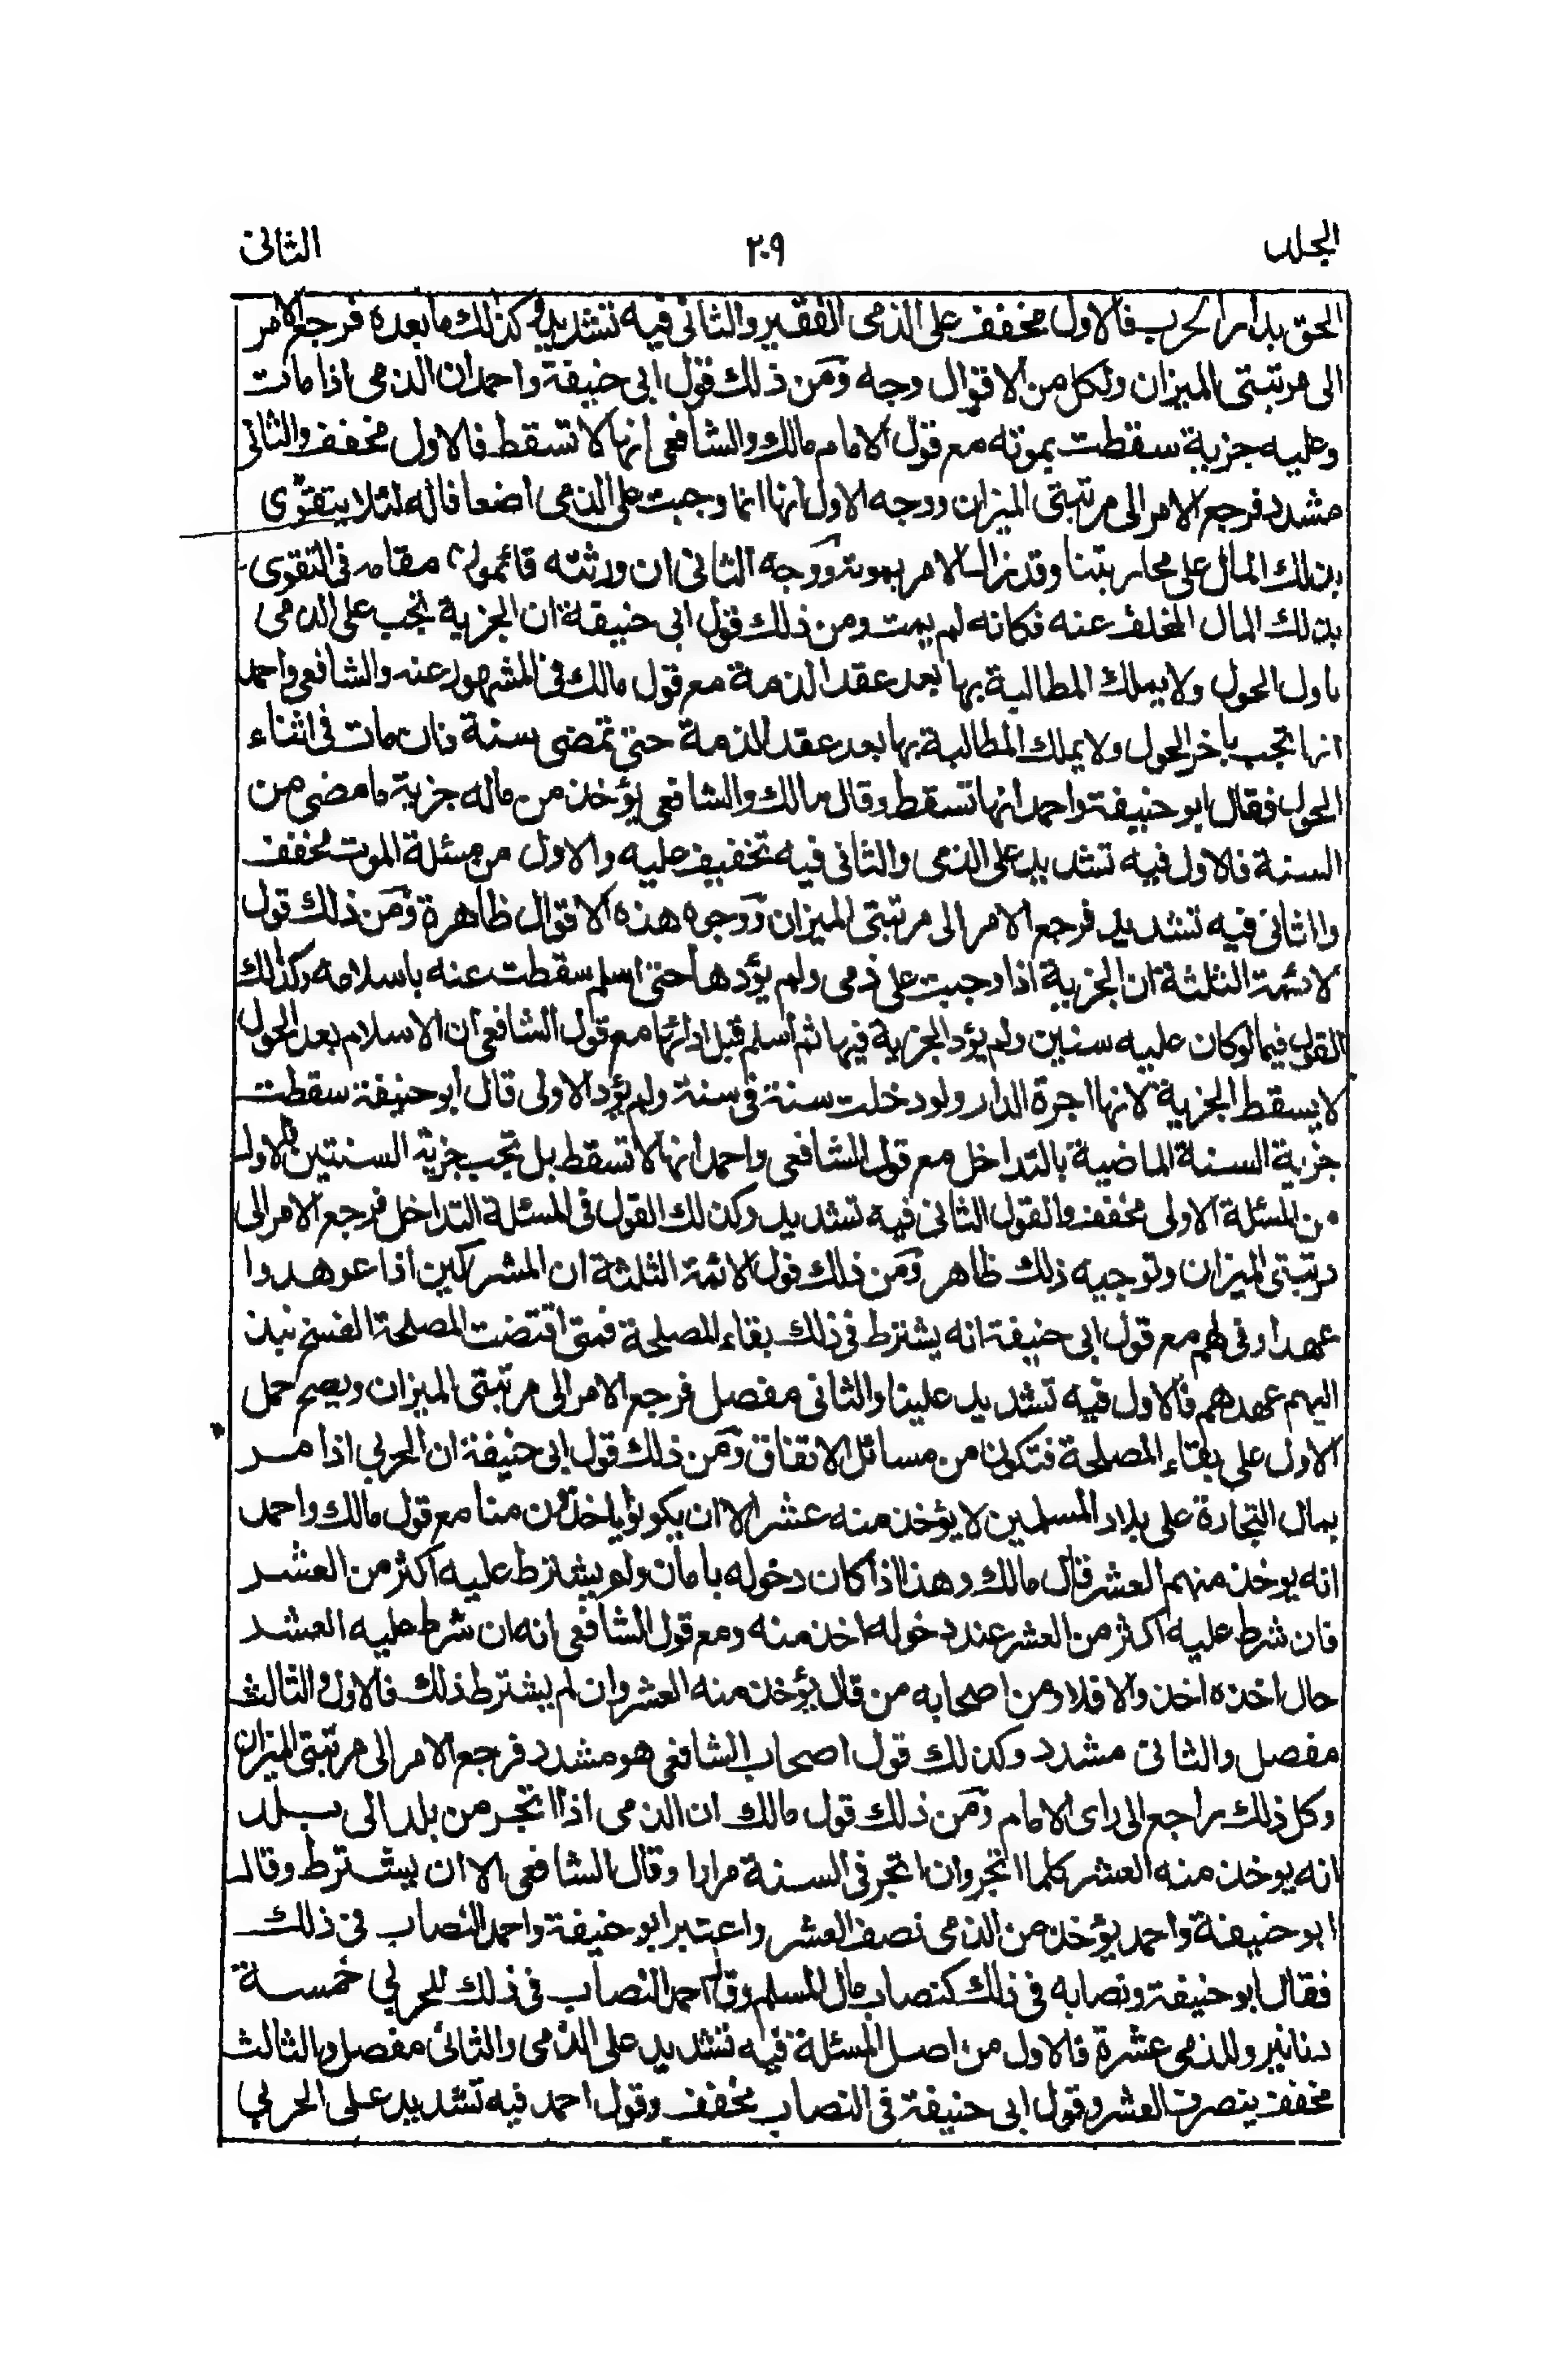 الجلد ٢٠٩ الثانى
الحق بدار الحرب فالاول مخفف على الذمى الفقير والثانى فيه تشديد وكذلك ما بعده فرجع الامر
الى مرتبتى الميزان ولكل من الاقوال وجه ومن ذلك قول ابى حنيفة واحمد ان الذمى اذا مات
وعليه جزية سقطت بموته مع قول الامام مالك والشافعى انها لا تسقط فالاول مخفف والثانى
مشدد فرجع الامر الى مرتبتى الميزان ووجه الاول انها انما وجبت على الذمى اضعافا له لئلا يتقوى
بذلك المال على محاربتنا وقد زال الامر بموته ووجه الثانى ان ورثته قائمون مقامه فى التقوى
بذلك المال المخلف عنه فكانه لم يمت ومن ذلك قول ابى حنيفة ان الجزية تجب على الذمى
باول الحول ولا يملك المطالبة بها بعد عقد الذمة مع قول مالك فى المشهور عنه والشافعى واحمد
انها تجب باخر الحول ولا يملك المطالبة بها بعد عقد الذمة حتى تمضى سنة فان مات فى اثناء
الحول فقال ابو حنيفة واحمد انها تسقط وقال مالك والشافعى يؤخذ من ماله جزية ما مضى من
السنة فالاول فيه تشديد على الذمى والثانى فيه تخفيف عليه والاول من مسئلة الموت مخفف
والثانى فيه تشديد فرجع الامر الى مرتبتى الميزان ووجوه هذه الاقوال ظاهرة ومن ذلك قول
الائمة الثلثة ان الجزية اذا وجبت على ذمى ولم يؤدها حتى اسلم سقطت عنه باسلامه وكذلك
القول فيما لو كان عليه سنين ولم يؤد الجزية فيها ثم اسلم قبل ادائها مع قول الشافعى ان الاسلام بعد الحول
لا يسقط الجزية لانها اجرة الدار ولو دخلت سنة فى سنة ولم يؤد الاولى قال ابو حنيفة سقطت
جزية السنة الماضية بالتداخل مع قول الشافعى واحمد انها لا تسقط بل تجب جزية السنتين فالاول
من المسئلة الاولى مخفف والقول الثانى فيه تشديد وكذلك القول فى المسئلة التداخل فرجع الامر الى
مرتبتى الميزان وتوجيه ذلك ظاهر ومن ذلك قول الائمة الثلثة ان المشركين اذا عوهدوا
عهدا وفى لهم مع قول ابى حنيفة انه يشترط فى ذلك بقاء المصلحة فمتى اقتضت المصلحة الفسخ نبذ
اليهم عهدهم فالاول فيه تشديد علينا والثانى مفصل فرجع الامر الى مرتبتى الميزان ويصح حمل
الاول على بقاء المصلحة فتكون من مسائل الاتفاق ومن ذلك قول ابى حنيفة ان الحربي اذا مر
بمال التجارة على بلاد المسلمين لا يؤخذ منه عشر الا ان يكونوا ياخذون منا مع قول مالك واحمد
انه يوخذ منهم العشر قال مالك وهذا اذا كان دخوله بامان ولم يشترط عليه اكثر من العشر
فان شرط عليه اكثر من العشر عند دخوله اخذ منه ومع قول الشافعى انه ان شرط عليه العشر
حال اخذه اخذ والا فلا ومن اصحابه من قال يؤخذ منه العشر وان لم يشترط ذلك فالاول والثالث
مفصل والثانى مشدد وكذلك قول اصحاب الشافعى هو مشدد فرجع الامر الى مرتبتى الميزان
وكل ذلك راجع الى راى الامام ومن ذلك قول مالك ان الذمى اذا اتجر من بلد الى بلد
انه يوخذ منه العشر كلما اتجر وان اتجر فى السنة مرارا وقال الشافعى الا ان يشترط وقال
ابو حنيفة واحمد يؤخذ من الذمى نصف العشر واعتبر ابو حنيفة واحمد النصاب فى ذلك
فقال ابو حنيفة ونصابه فى ذلك كنصاب مال المسلم وقال احمد النصاب فى ذلك للحربي خمسة
دنانير وللذمى عشرة فالاول من اصل المسئلة فيه تشديد على الذمى والثانى مفصل والثالث
مخفف بنصف العشر وقول ابى حنيفة فى النصاب مخفف وقول احمد فيه تشديد على الحربي